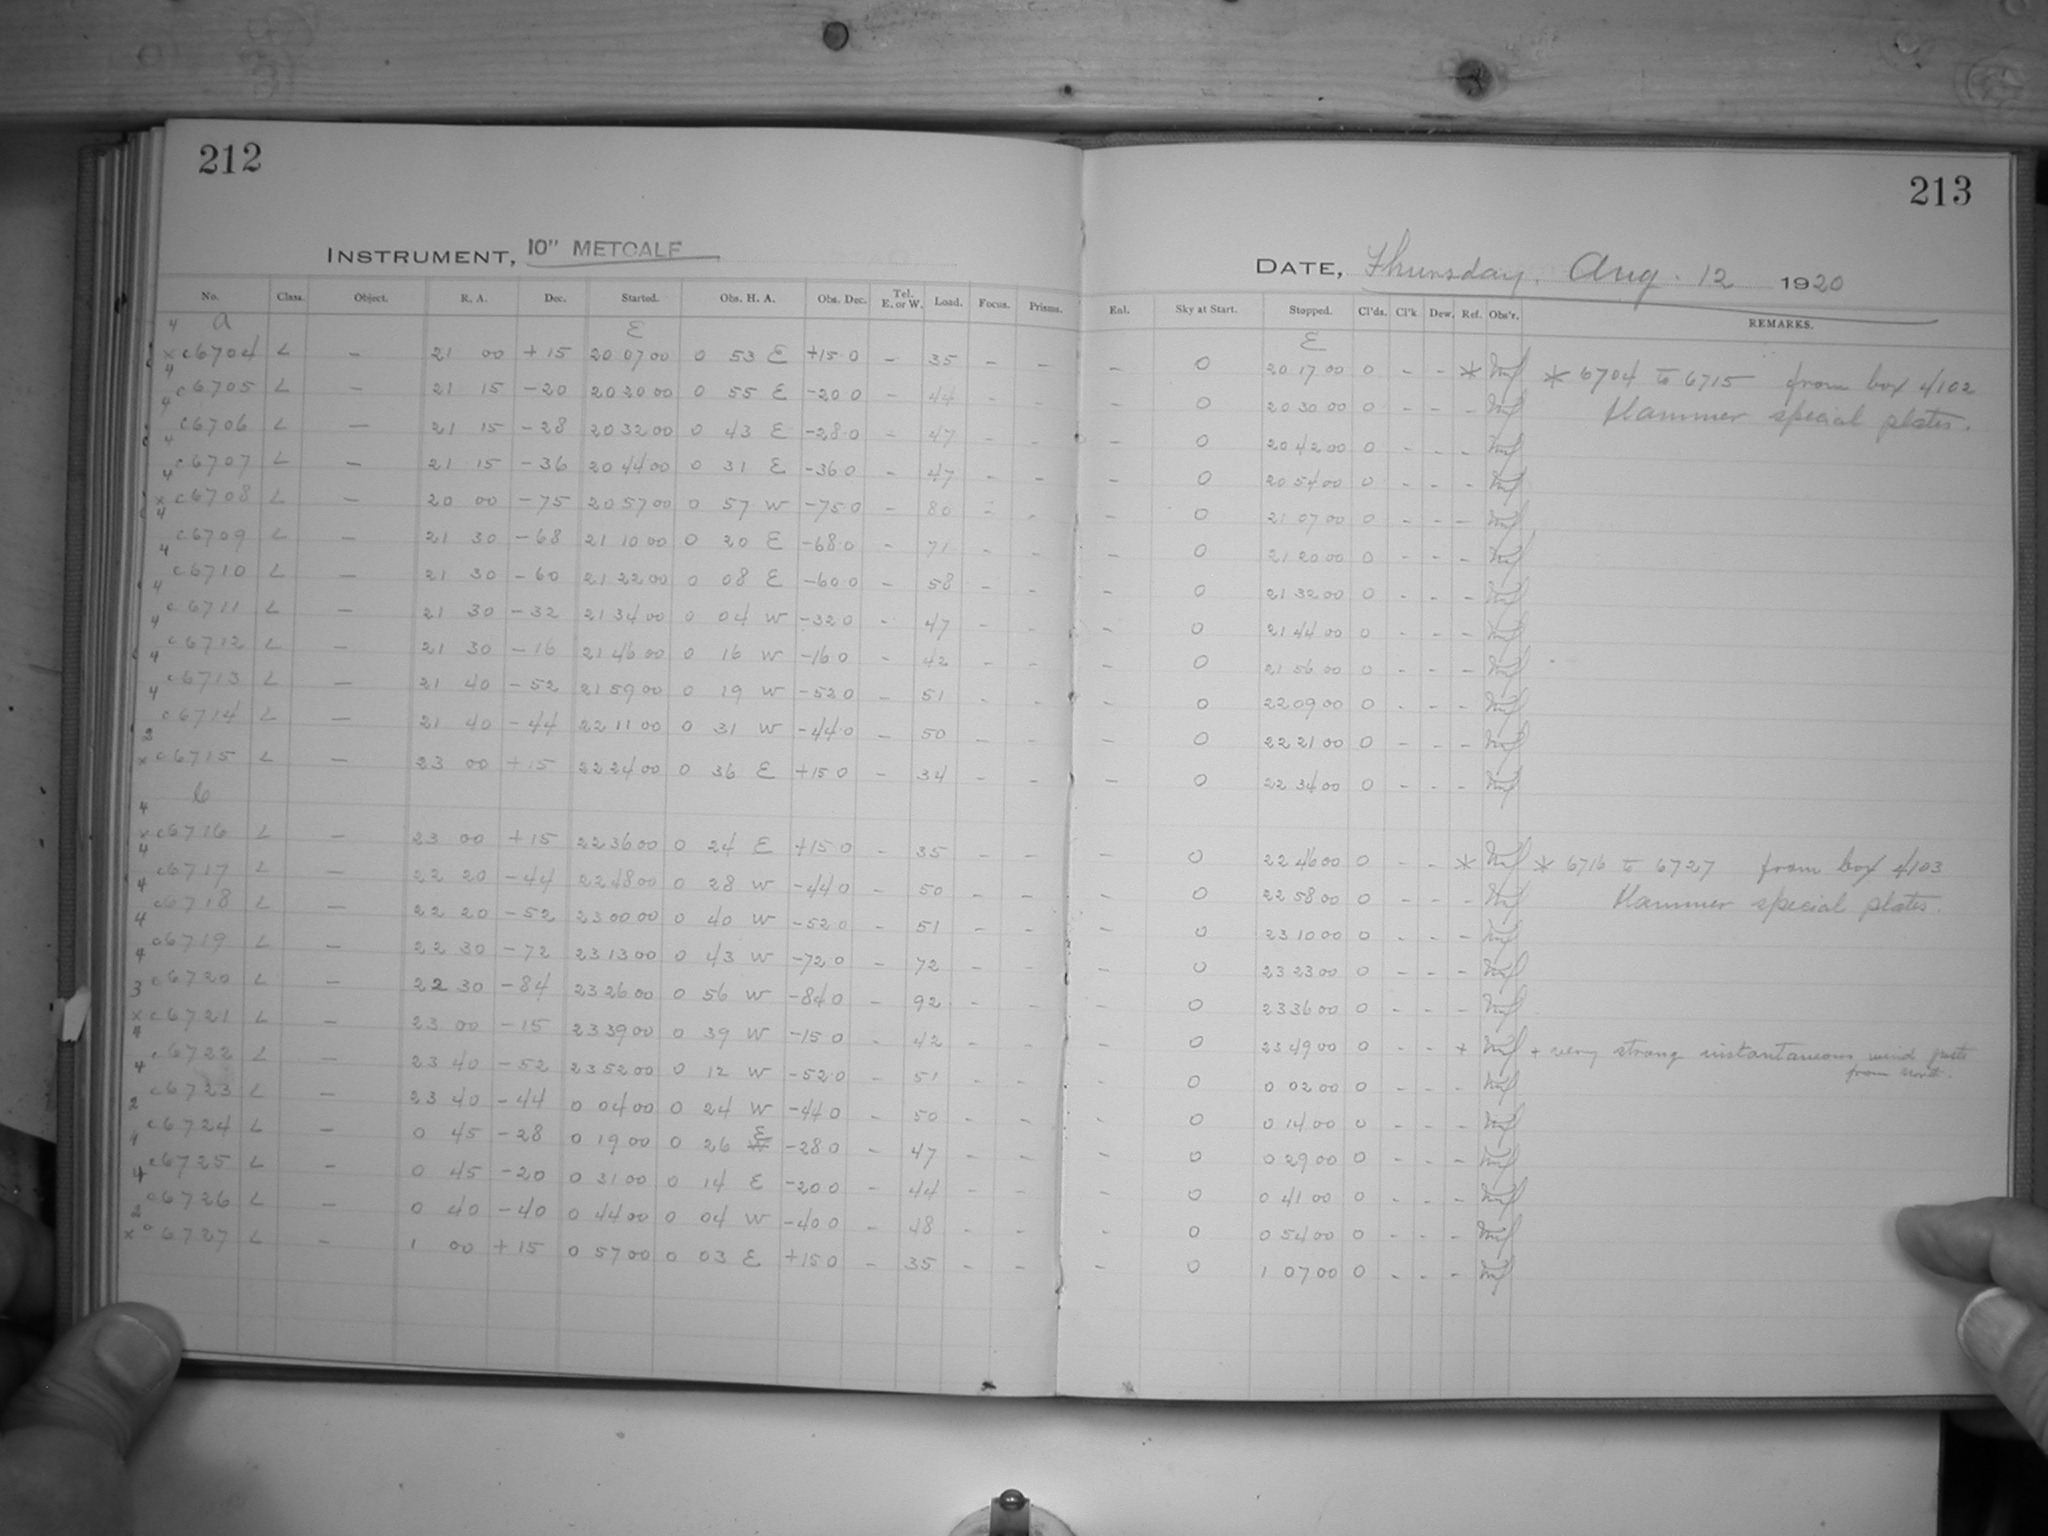 212
INSTRUMENT, 10" METCALF
No. Class. Object. R. A. Dec. Started. Obs. H. A. Obs. Dec. Tel. E. or W. Load. Focus. Prisms.
4 a E
x c6704 L – 21 00 +15 20 07 00 0 53 E +15 0 – 35 – –
4 c6705 L – 21 15 –20 20 20 00 0 55 E –20 0 – 44 – –
4 c6706 L – 21 15 –28 20 32 00 0 43 E –28 0 – 47 – –
4 c6707 L – 21 15 –36 20 44 00 0 31 E –36 0 – 47 – –
4 x c6708 L – 20 00 –75 20 57 00 0 57 W –75 0 – 80 – –
4 c6709 L – 21 30 –68 21 10 00 0 20 E –68 0 – 71 – –
4 c6710 L – 21 30 –60 21 22 00 0 08 E –60 0 – 58 – –
4 c6711 L – 21 30 –32 21 34 00 0 04 W –32 0 – 47 – –
4 c6712 L – 21 30 –16 21 46 00 0 16 W –16 0 – 42 – –
4 c6713 L – 21 40 –52 21 59 00 0 19 W –52 0 – 51 – –
4 c6714 L – 21 40 –44 22 11 00 0 31 W –44 0 – 50 – –
3 x c6715 L – 23 00 +15 22 24 00 0 36 E +15 0 – 34 – –
b
4 x c6716 L – 23 00 +15 22 36 00 0 24 E +15 0 – 35 – –
4 c6717 L – 22 20 –44 22 48 00 0 28 W –44 0 – 50 – –
4 c6718 L – 22 20 –52 23 00 00 0 40 W –52 0 – 51 – –
4 c6719 L – 22 30 –72 23 13 00 0 43 W –72 0 – 72 – –
4 c6720 L – 22 30 –84 23 26 00 0 56 W –84 0 – 92 – –
3 x c6721 L – 23 00 –15 23 39 00 0 39 W –15 0 – 42 – –
4 c6722 L – 23 40 –52 23 52 00 0 12 W –52 0 – 51 – –
4 c6723 L – 23 40 –44 0 04 00 0 24 W –44 0 – 50 – –
2 c6724 L – 0 45 –28 0 19 00 0 26 E –28 0 – 47 – –
4 c6725 L – 0 45 –20 0 31 00 0 14 E –20 0 – 44 – –
4 c6726 L – 0 40 –40 0 44 00 0 04 W –40 0 – 48 – –
2 x c6727 L – 1 00 +15 0 57 00 0 03 E +15 0 – 35 – –
213
DATE, Thursday, Aug. 12 1920
Enl. Sky at Start. Stopped. Cl'ds. Cl'k Dew. Ref. Obs'r. REMARKS.
E
– 0 20 17 00 0 – – * * 6704 to 6715 from box 4102
– 0 20 30 00 0 – – – Hammer special plates.
– 0 20 42 00 0 – – –
– 0 20 54 00 0 – – –
– 0 21 07 00 0 – – –
– 0 21 20 00 0 – – –
– 0 21 32 00 0 – – –
– 0 21 44 00 0 – – –
– 0 21 56 00 0 – – –
– 0 22 09 00 0 – – –
– 0 22 21 00 0 – – –
– 0 22 34 00 0 – – –
– 0 22 46 00 0 – – * * 6716 to 6727 from box 4103
– 0 22 58 00 0 – – – Hammer special plates.
– 0 23 10 00 0 – – –
– 0 23 23 00 0 – – –
– 0 23 36 00 0 – – –
– 0 23 49 00 0 – – + + very strong instantaneous wind gusts
from north.
– 0 0 02 00 0 – – –
– 0 0 14 00 0 – – –
– 0 0 29 00 0 – – –
– 0 0 41 00 0 – – –
– 0 0 54 00 0 – – –
– 0 1 07 00 0 – – –